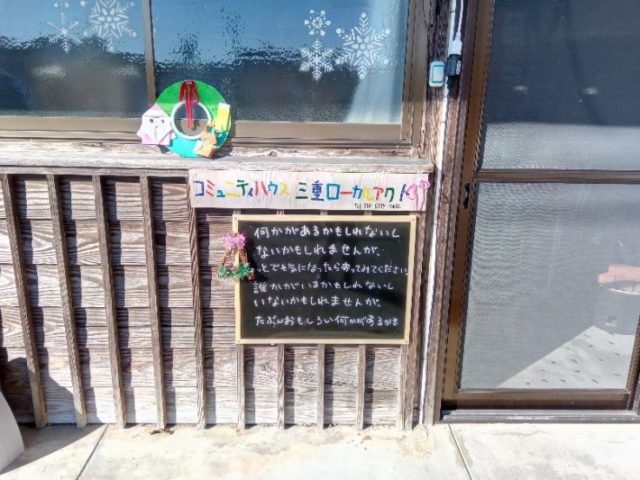 コミュニティハウス 三重ローカルアクト
何かがあるかもしれないし
ないかもしれませんが、
っとでも気になったらあってみてください
誰かがいるかもしれないし
いないかもしれませんが
たぶんおもしろい何かがあるかも